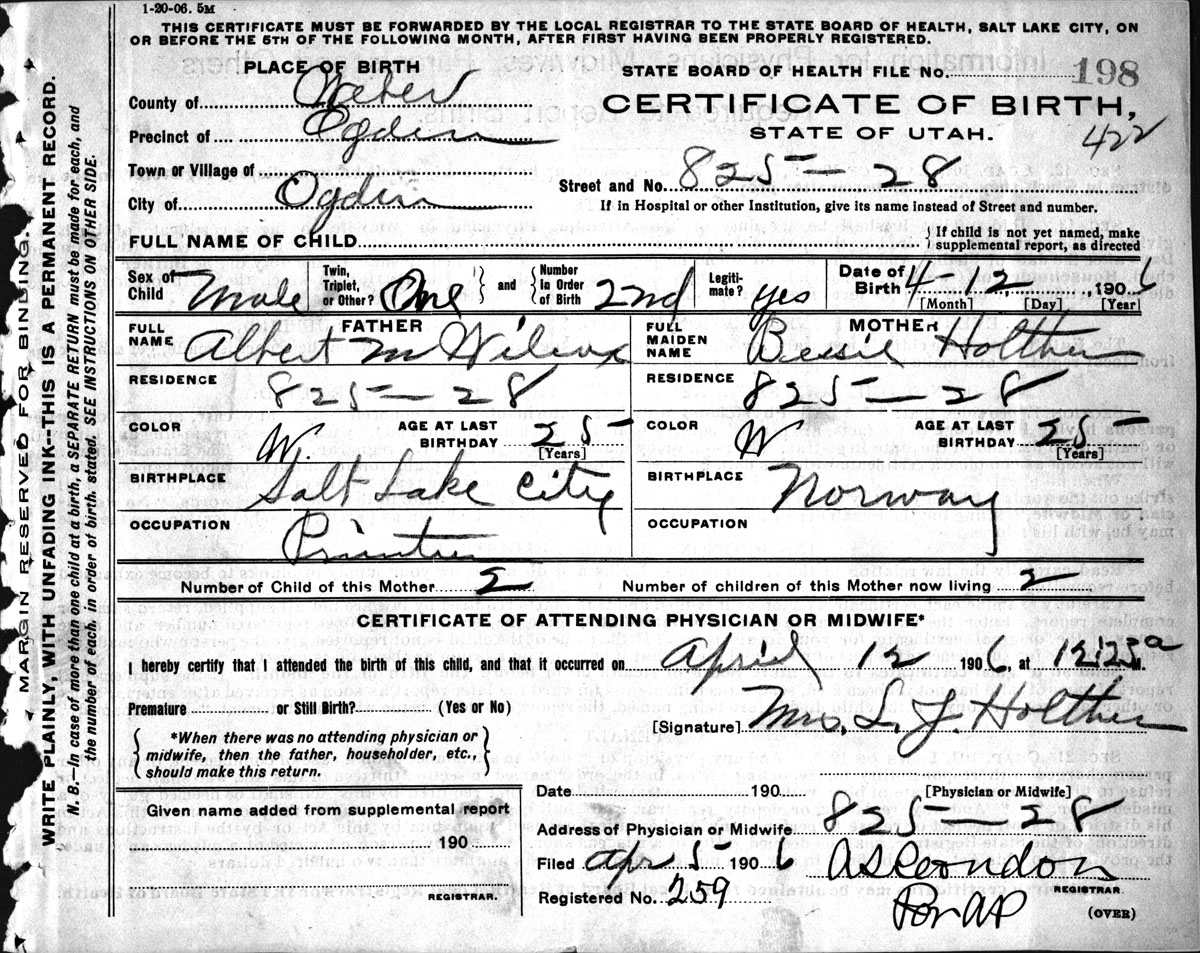 1-20-06. 5M
THIS CERTIFICATE MUST BE FORWARDED BY THE LOCAL REGISTRAR TO THE STATE BOARD OF HEALTH, SALT LAKE CITY, ON
OR BEFORE THE 5TH OF THE FOLLOWING MONTH, AFTER FIRST HAVING BEEN PROPERLY REGISTERED.
MARGIN RESERVED FOR BINDING.
WRITE PLAINLY, WITH UNFADING INK--THIS IS A PERMANENT RECORD.
N. B.—In case of more than one child at a birth, a SEPARATE RETURN must be made for each, and
the number of each, in order of birth, stated. SEE INSTRUCTIONS ON OTHER SIDE.
PLACE OF BIRTH
County of Weber
Precinct of Ogden
Town or Village of
City of Ogden
STATE BOARD OF HEALTH FILE NO. 198
CERTIFICATE OF BIRTH,
STATE OF UTAH.
422
Street and No. 825 — 28
If in Hospital or other Institution, give its name instead of Street and number.
FULL NAME OF CHILD
If child is not yet named, make
supplemental report, as directed
Sex of Child Male
Twin, Triplet, or Other? One and Number In Order of Birth 2nd
Legitimate? yes
Date of Birth 4 - 12, 1906
[Month] [Day] [Year]
FATHER
FULL NAME Albert M Wilcox
RESIDENCE 825 — 28
COLOR W. AGE AT LAST BIRTHDAY 25
[Years]
BIRTHPLACE Salt Lake City
OCCUPATION Printer
MOTHER
FULL MAIDEN NAME Bessie Holther
RESIDENCE 825 — 28
COLOR W AGE AT LAST BIRTHDAY 25
[Years]
BIRTHPLACE Norway
OCCUPATION
Number of Child of this Mother 2 Number of children of this Mother now living 2
CERTIFICATE OF ATTENDING PHYSICIAN OR MIDWIFE*
I hereby certify that I attended the birth of this child, and that it occurred on April 12 1906, at 12:25 a M.
Premature or Still Birth? (Yes or No)
[Signature] Mrs. L. J. Holther
[Physician or Midwife]
*When there was no attending physician or
midwife, then the father, householder, etc.,
should make this return.
Given name added from supplemental report
190
REGISTRAR.
Date 190
Address of Physician or Midwife 825 — 28
Filed Apr 5 1906
Registered No. 259
REGISTRAR.
(OVER)